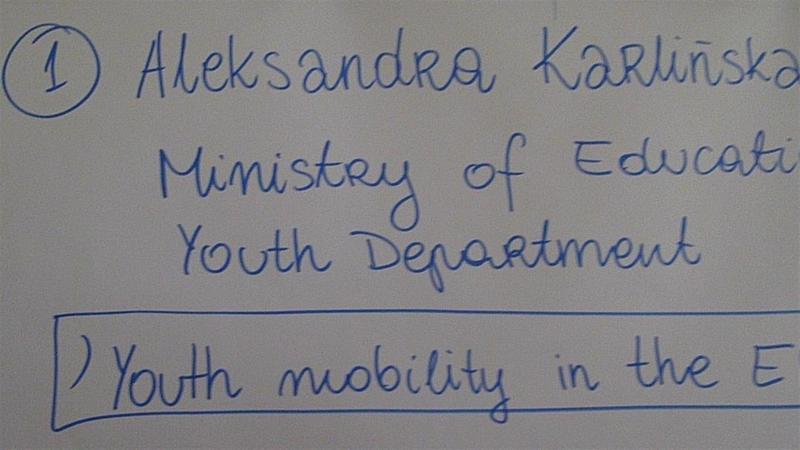 1 Aleksandra Karlińska
Ministry of Educati
Youth Department
) Youth mobility in the E